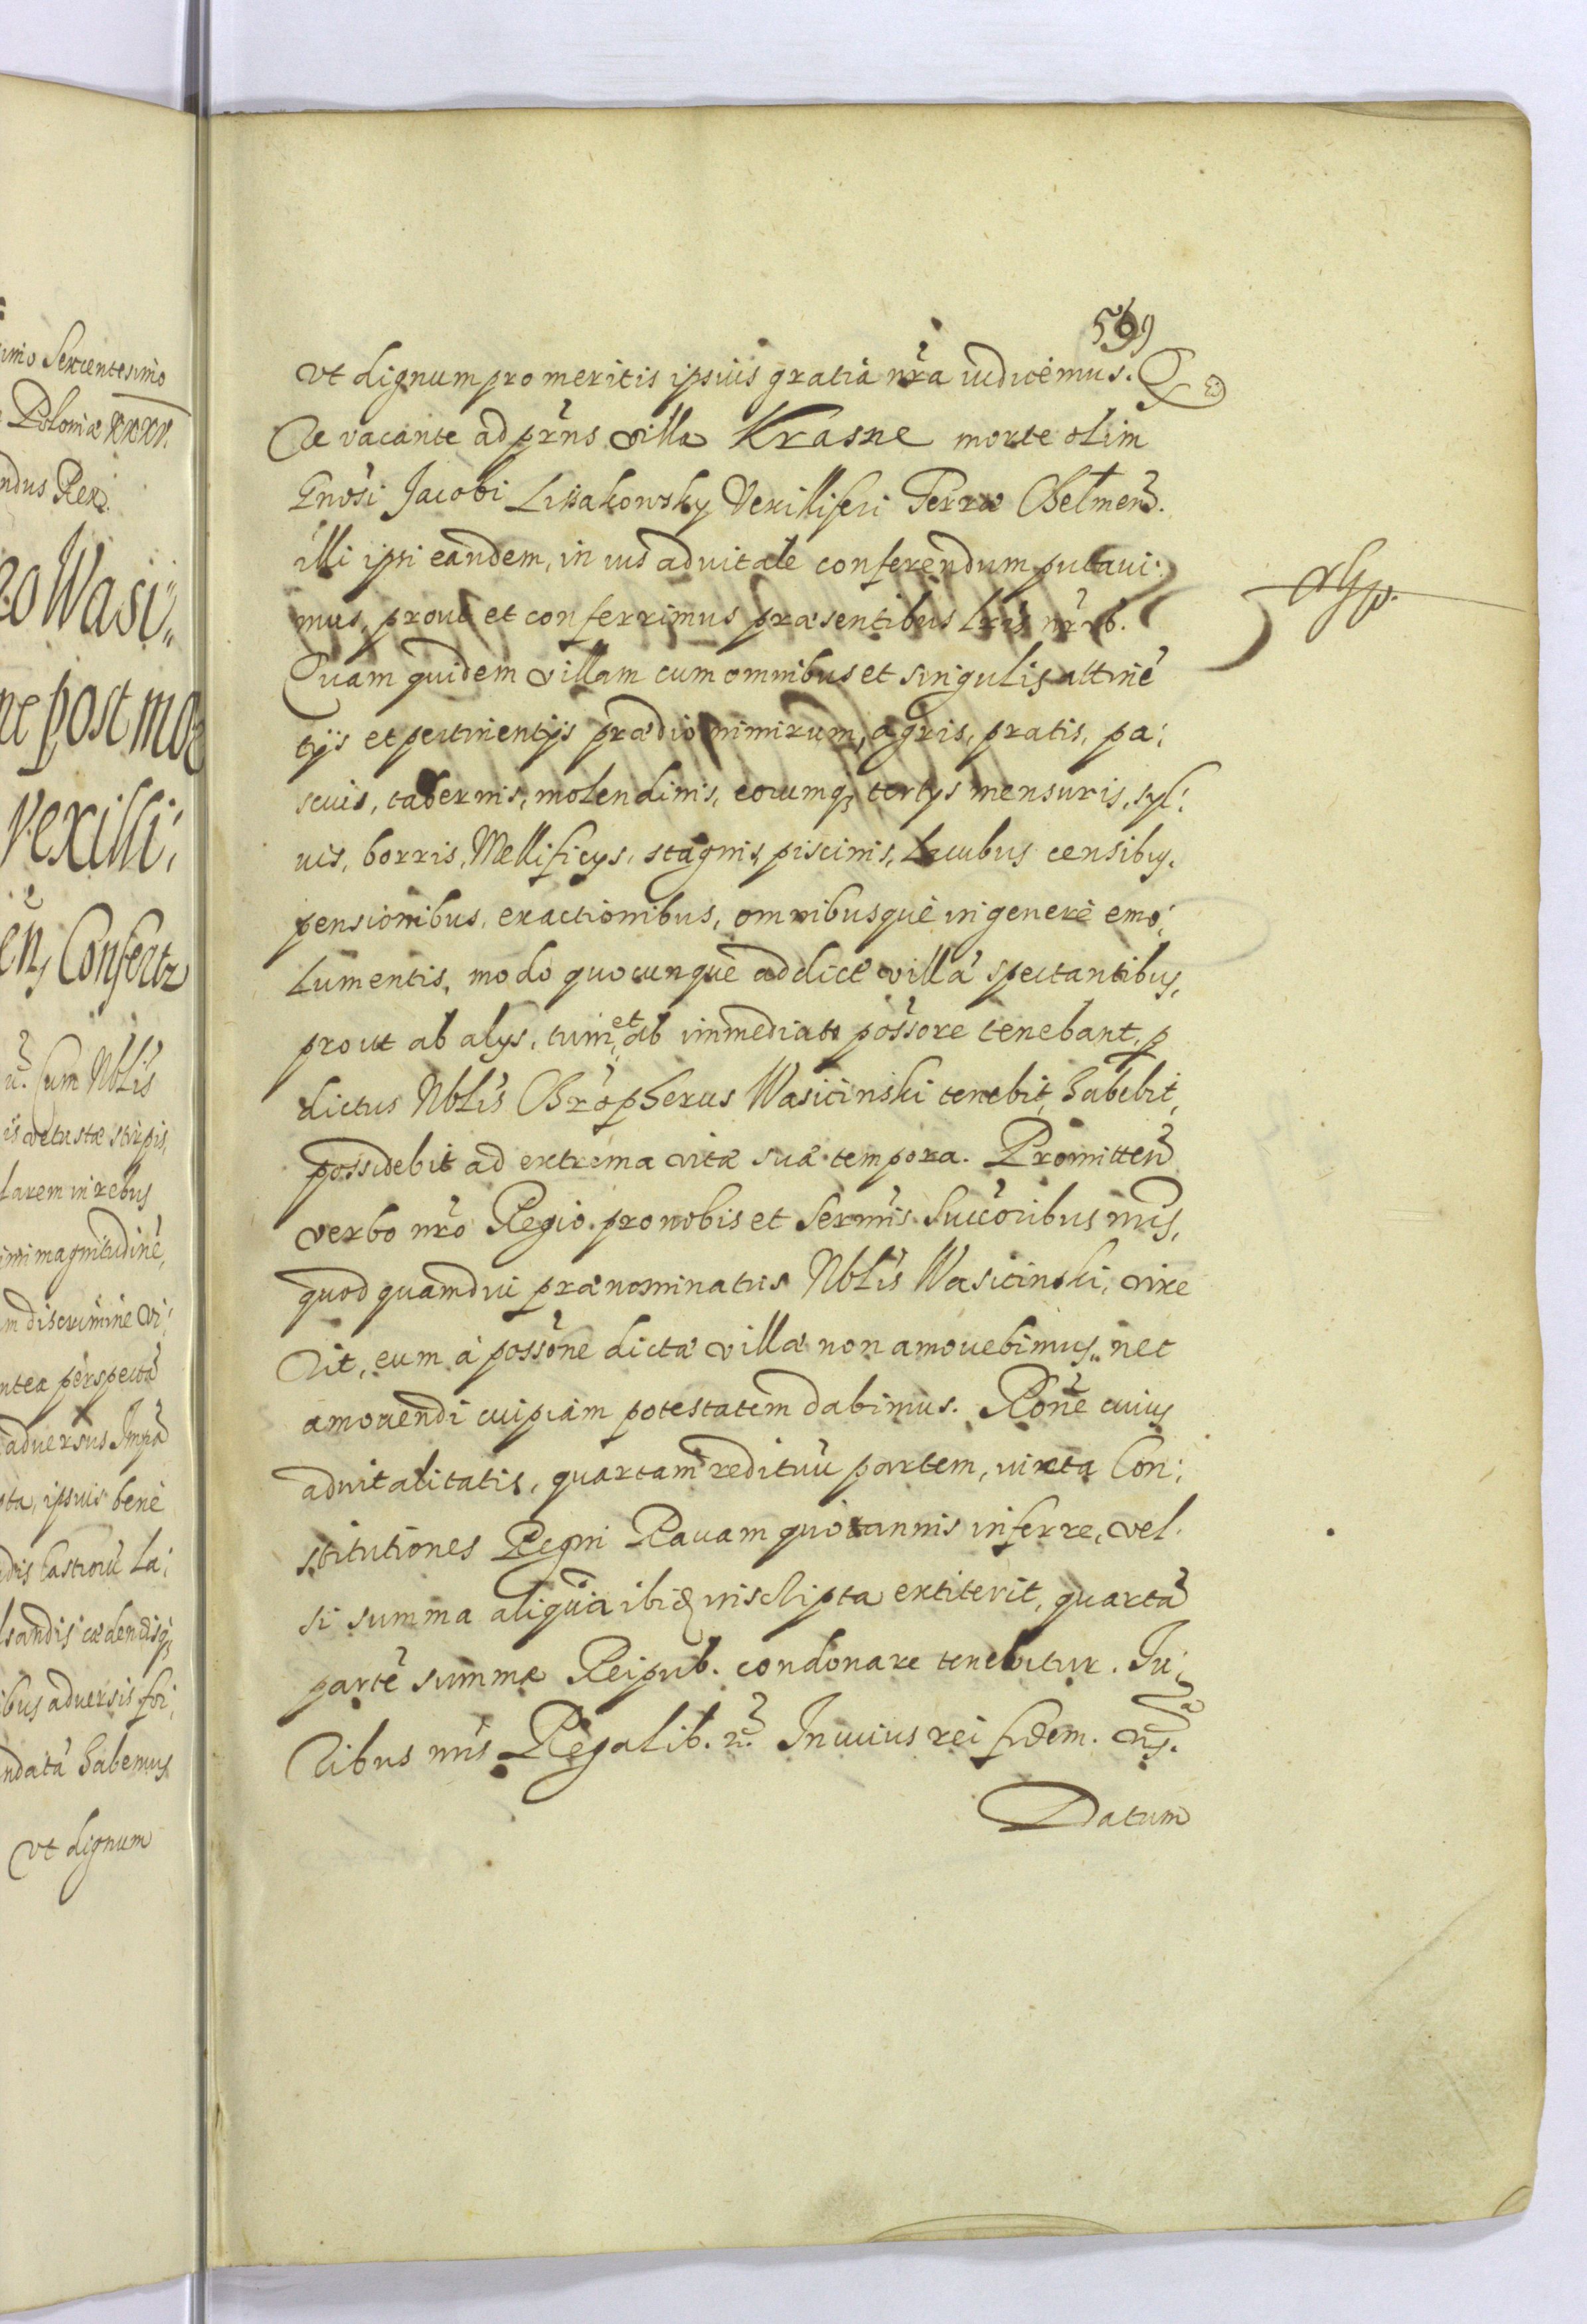 imo Sexcentesimo
Poloniæ XXXV.
ndus Rex.
Wasi„
ne post mor
vexilli:
en, Confertr
Cum Nblis
is vetustæ stirpis,
larem in rebus
imi magnitudinē,
m discrimine vi:
ntea perspectā
adversus Impā
ota, ipsius bene
dis Castrorū La:
lsandis cædendisq,
ibus adversis for:
ndatā habemus
Vt dignum
569
Vt dignum pro meritis ipsius gratia nrã iudicēmus. Q
Ue vacante ad prñs villa Krasne morte olim
Gnosi Jacobi Lissakowsky Vexilliferi Terræ Chelmeñ.
illi ipsi eandem, in ius aduitale conferendum putaui:
mus, prout et conferrimus præsentibus Lris nrib.
Quam quidem villam cum omnibus et singulis attinē
tijs et pertinentijs prædio nimirum, agris, pratis, pa:
scuis, tabernis, molendinis, eorumq, tertys mensuris, syl:
uis, borris, Mellificys, stagnis, piscinis, Lacubus censibus,
pensionibus, exactionibus, omnibusque in genere emo:
lumentis, modo quocunque ad dictā villā spectantibus,
prout ab alys, tum et ab immediato possore tenebant, p
dictus Nblis Chropherus Wasicinski tenebit, habebit,
possidebit ad extrema vitæ suæ tempora. Promitteñ
verbo nro Regio pro nobis et Sermis Succoribus nris,
quod quamdiu prænominatus Nblis Wasicinski, vixe
Rit, eum à possone dictæ villæ non amouebimus, nec
amouendi cuipiam potestatem dabimus. Rone cuius
aduitalitatis, quartam redituū partem, iuxta Con:
stitutiones Regni Rauam quotannis inferre, vel
si summa aliqua ibid inscripta extiterit, quartā
partē summæ Reipub. condonare tenebitur. Iu:
Ribus nris Regalib. Incuius rei fidem.
Datum